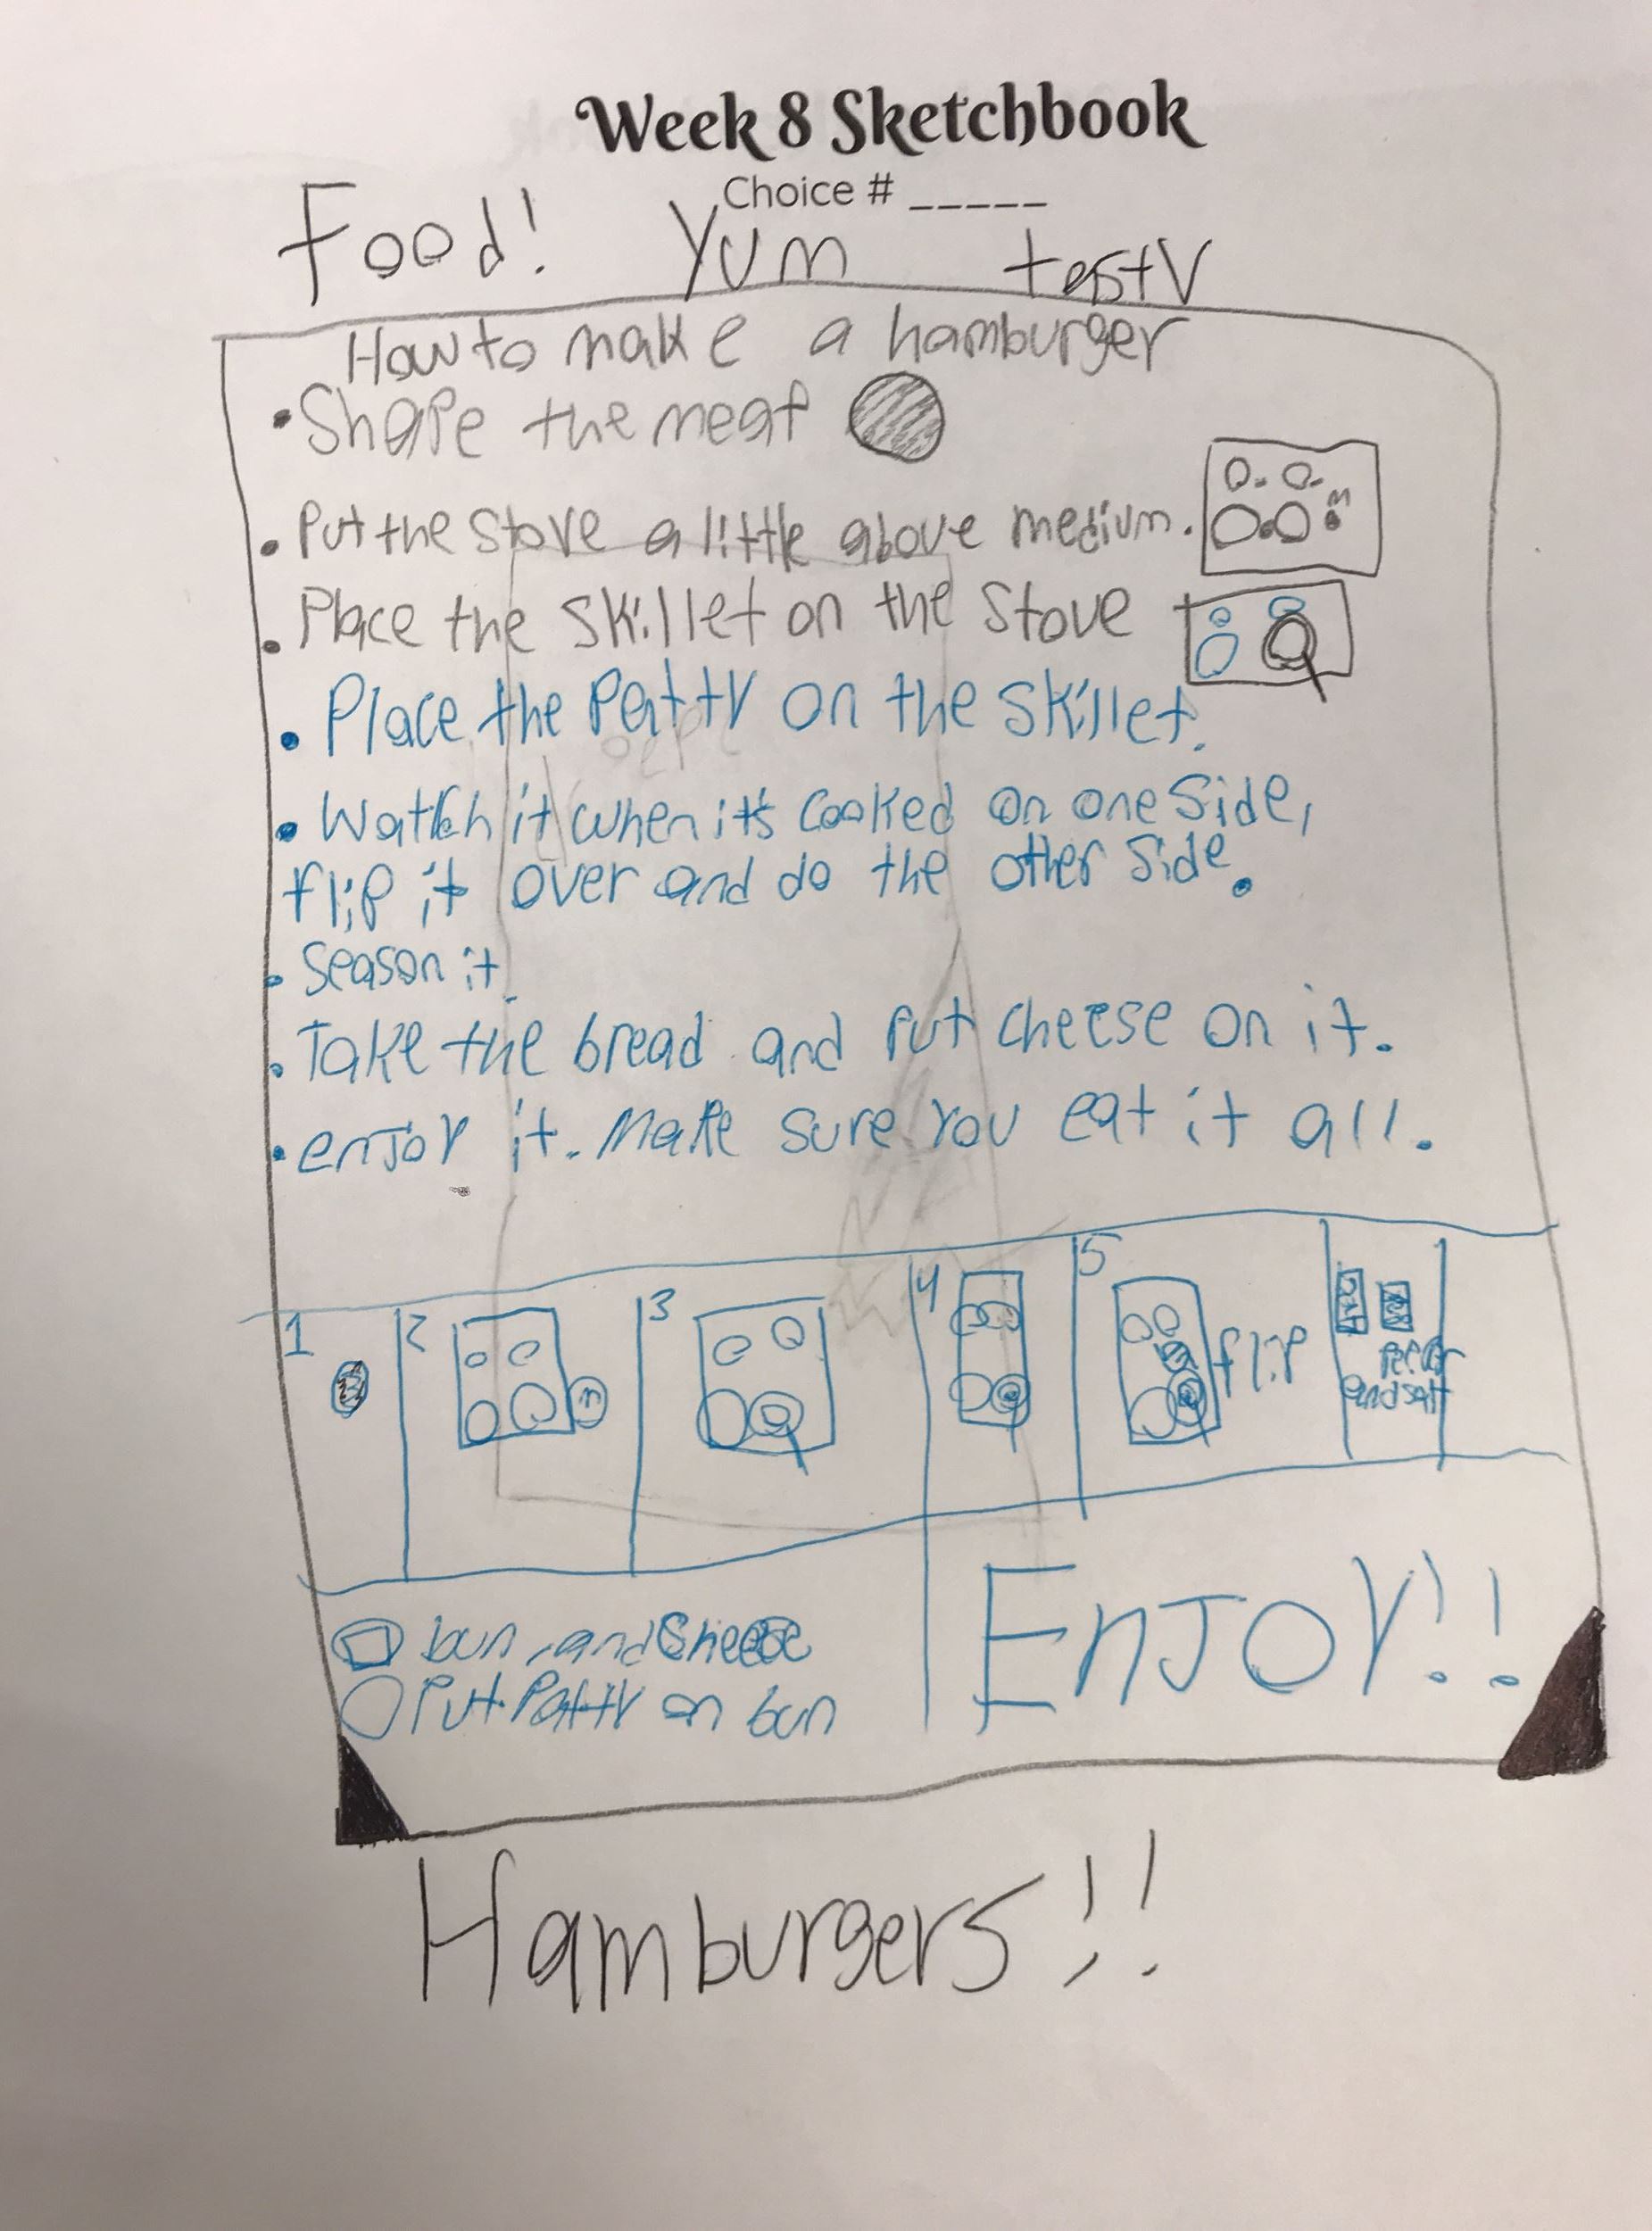 Week 8 Sketchbook
Choice # _____
Food! Yum testy
How to make a hamburger
• Shape the meat
• Put the stove a little above medium.
M
• Place the skillet on the stove
• Place the Patty on the skillet.
• Watch it when it's cooked on one side,
flip it over and do the other side.
• Season it.
• Take the bread and put cheese on it.
• enjoy it. Make sure you eat it all.
1 2 3 4 5
m
flip
pepper
and salt
bun and cheese
Put Patty on bun
Enjoy!!
Hamburgers!!